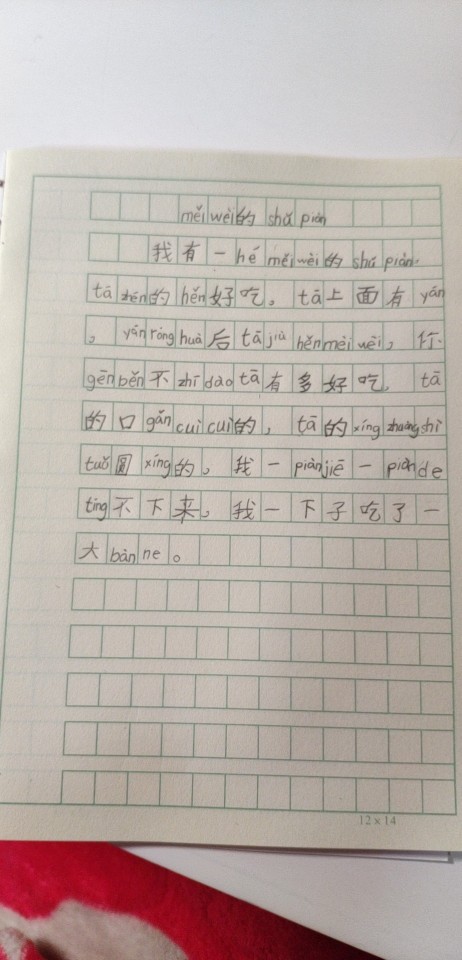 měi wèi的 shǔ piàn
我有一hé měi wèi的 shǔ piàn.
tā zhēn的 hěn好吃。tā上面有 yán
，yán róng huà后 tā jiù hěn měi wèi，行
gēn běn不 zhī dào tā有多好吃，tā
的口 gǎn cuì cuì的，tā的 xíng zhuàng shì
tuǒ圆 xíng的，我一 piàn jiē一 piàn de
tíng不下来，我一下子吃了一
大 bàn ne。
12×14